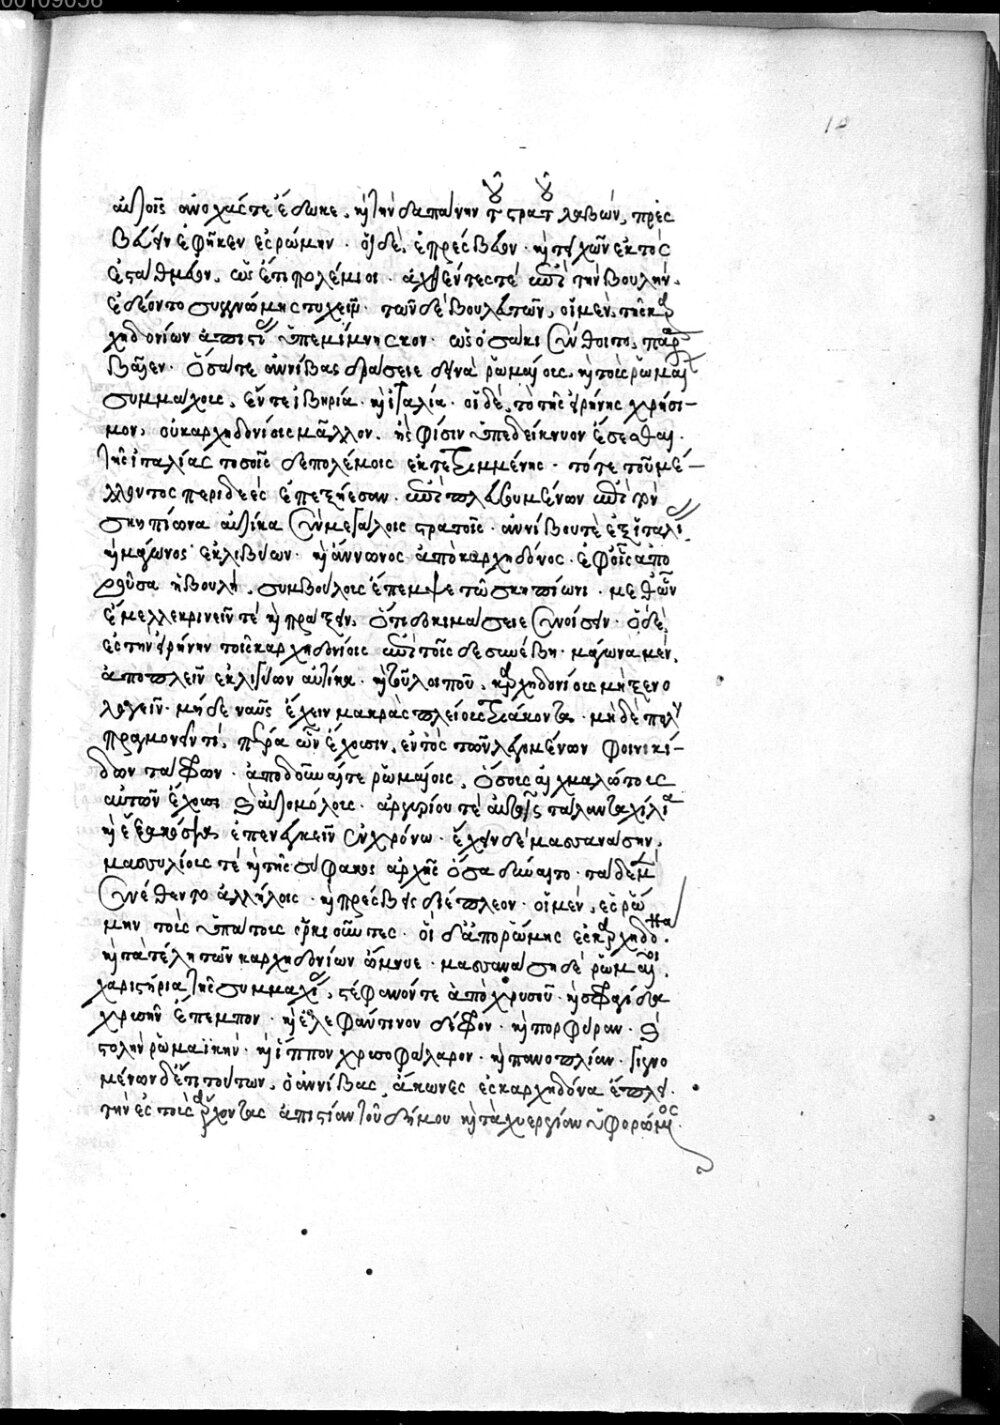 00109056
10
αὐτοῖς ἀνοχάς τε ἔδωκε, καὶ τὴν δαπάνην τοῦ στρατοῦ λαβὼν, πρεσ
βεύειν ἐφῆκεν ἐς ῥώμην. οἱ δὲ, ἐπρέσβευον. καὶ τειχῶν ἐκτὸς
ἐστάθμευον, ὡς ἔτι πολέμιοι. ἀχθέντες τε ἐπὶ τὴν βουλὴν,
ἐδέοντο συγγνώμης τυχεῖν. τῶν δὲ βουλευτῶν, οἱ μὲν, τῆς καρ
χηδονίων ἀπιστίας ὑπεμίμνησκον. ὡς ὁσάκι συνθοῖντο, παρα
βαῖεν. ὅσα τε ἀννίβας δράσειε δεινὰ ῥωμαίοις, καὶ τοῖς ῥωμαίων
συμμάχοις, ἔν τε ἰβηρία καὶ ἰταλία. οἱ δὲ, τὸ τῆς εἰρήνης χρήσι-
μον, οὐ καρχηδονίοις μᾶλλον, ἢ σφίσιν ὑπεδείκνυον ἔσεσθαι.
τῆς ἰταλίας τοσοῖσδε πολέμοις ἐκτετριμμένης. τό τε τοῦ μέ-
λλοντος περιδεὲς ἐπεξῄεσαν. ἐπιπλευσουμένων ἐπὶ τὸν
σκηπίωνα αὐτίκα σὺν μεγάλοις στρατοῖς. ἀννίβου τὲ ἐξ ἰταλίας,
καὶ μάγωνος ἐκ λιβύων. καὶ ἄννωνος ἀπὸ καρχηδόνος. ἐφ' οἷς ἀπο
ροῦσα ἡ βουλὴ, συμβούλους ἔπεμψε τῶ σκηπίωνι. μεθ' ὧν
ἔμελλε κρινεῖν τε καὶ πράξειν, ὅ τι δοκιμάσειε συνοίσειν. ὁ δὲ,
ἐς τὴν εἰρήνην τοῖς καρχηδονίοις ἐπὶ τοῖσδε συνέβη. μάγωνα μὲν,
ἀποπλεῖν ἐκ λιγύων αὐτίκα. καὶ τοῦ λοιποῦ, καρχηδονίους μὴ ξενο
λογεῖν. μήδε ναῦς ἔχειν μακρὰς πλείους τριάκοντα. μηδὲ πολυ
πραγμονεῖν τι, πέρα ὧν ἔχουσιν, ἐντὸς τῶν λεγομένων φοινικί-
δων τάφρων. ἀποδοῦναί τε ῥωμαίοις, ὅσους αἰχμαλώτους
αὐτῶν ἔχουσι καὶ αὐτομόλους. ἀργυρίου τε αὐτοῖς τάλαντα χίλια
καὶ ἑξακόσια, ἐπενεγκεῖν ἐν χρόνω. ἔχειν δὲ μασσανάσσην,
μασσυλίους τὲ καὶ τῆς σύφακος ἀρχῆς ὅσα δύναιτο. τάδε μὲν
συνέθεντο ἀλλήλοις. καὶ πρέσβεις διέπλεον. οἱ μὲν, ἐς ῥώ
μην τοὺς ὑπάτους ὁρκιοῦντες. οἱ δ' ἀπὸ ῥώμης ἐς καρχηδόνα.
καὶ τὰ τέλη τῶν καρχηδονίων ὤμνυε. μασσανάσση δὲ ῥωμαῖοι
χαριστήρια τῆς συμμαχίας, στέφανόν τε ἀπὸ χρυσοῦ καὶ σφραγίδα
χρυσῆν ἔπεμπον. καὶ ἐλεφάντινον δίφρον. καὶ πορφύραν. καὶ
στολὴν ῥωμαϊκὴν. καὶ ἵππον χρυσοφάλαρον. καὶ πανοπλίαν. γιγνο
μένων δ' ἔτι τούτων, ὁ ἀννίβας ἄκων ἐς καρχηδόνα ἔπλει.
τὴν ἐς τοὺς ἄρχοντας ἀπιστίαν τοῦ δήμου καὶ ταχυεργίαν ὑφορώμενος.